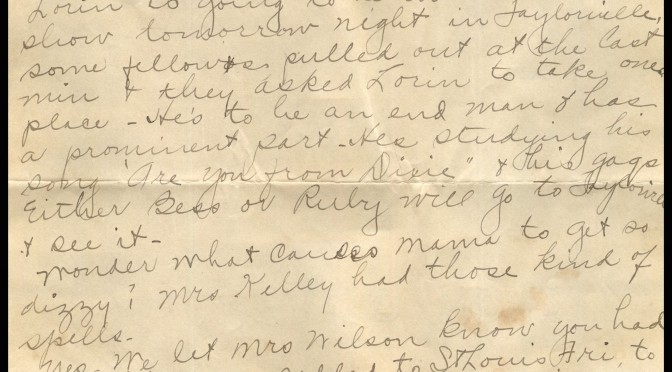 Lorin is going to be in
show tomorrow night in Taylorville,
some fellows pulled out at the last
min & they asked Lorin to take ones
place - He's to be an end man & has
a prominent part - Hes studying his
song "Are you from Dixie" & his gags
Either Bess or Ruby will go to Taylorville
& see it -
Wonder what causes mama to get so
dizzy? Mrs Kelley had those kind of
spells.
Yes. We let Mrs Wilson know you had
to St Louis Fri. to